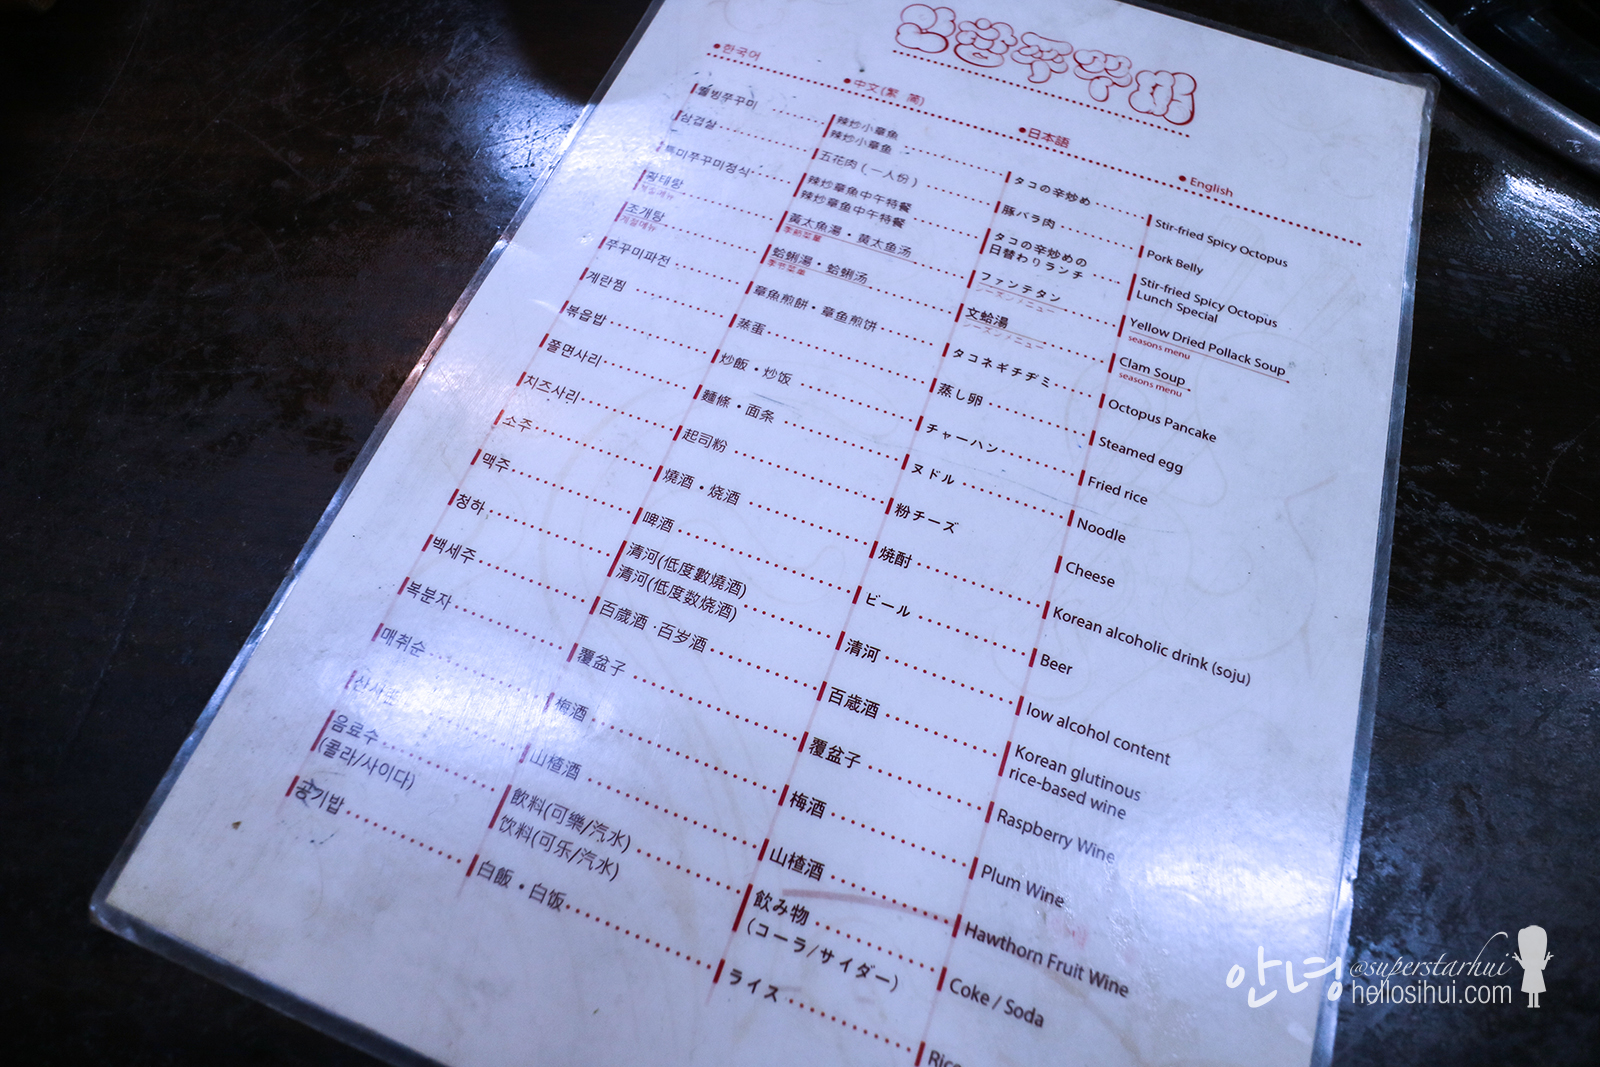 한국어
中文(繁 簡)
日本語
English
쭈꾸미
辣炒小章魚
辣炒小章鱼
タコの辛炒め
Stir-fried Spicy Octopus
삼겹살
五花肉 ( 一人份 )
豚バラ肉
Pork Belly
쭈꾸미정식
辣炒章魚中午特餐
辣炒章鱼中午特餐
タコの辛炒めの
日替わりランチ
Stir-fried Spicy Octopus
Lunch Special
황태탕
계절메뉴
黃太魚湯・黄太鱼汤
季節菜單
ファンテタン
シーズンメニュー
Yellow Dried Pollack Soup
seasons menu
조개탕
계절메뉴
蛤蜊湯・蛤蜊汤
季节菜单
文蛤湯
シーズンメニュー
Clam Soup
seasons menu
쭈꾸미파전
章魚煎餅・章鱼煎饼
タコネギチヂミ
Octopus Pancake
계란찜
蒸蛋
蒸し卵
Steamed egg
볶음밥
炒飯・炒饭
チャーハン
Fried rice
쫄면사리
麵條・面条
ヌドル
Noodle
치즈사리
起司粉
粉チーズ
Cheese
소주
燒酒・烧酒
焼酎
Korean alcoholic drink (soju)
맥주
啤酒
ビール
Beer
청하
清河(低度數燒酒)
清河(低度数烧酒)
清河
low alcohol content
백세주
百歲酒・百岁酒
百歳酒
Korean glutinous
rice-based wine
복분자
覆盆子
覆盆子
Raspberry Wine
매취순
梅酒
梅酒
Plum Wine
山楂酒
山楂酒
Hawthorn Fruit Wine
음료수
(콜라/사이다)
飲料(可樂/汽水)
饮料(可乐/汽水)
飲み物
(コーラ/サイダー)
Coke / Soda
공기밥
白飯・白饭
ライス
안녕
@superstarhui
hellosihui.com